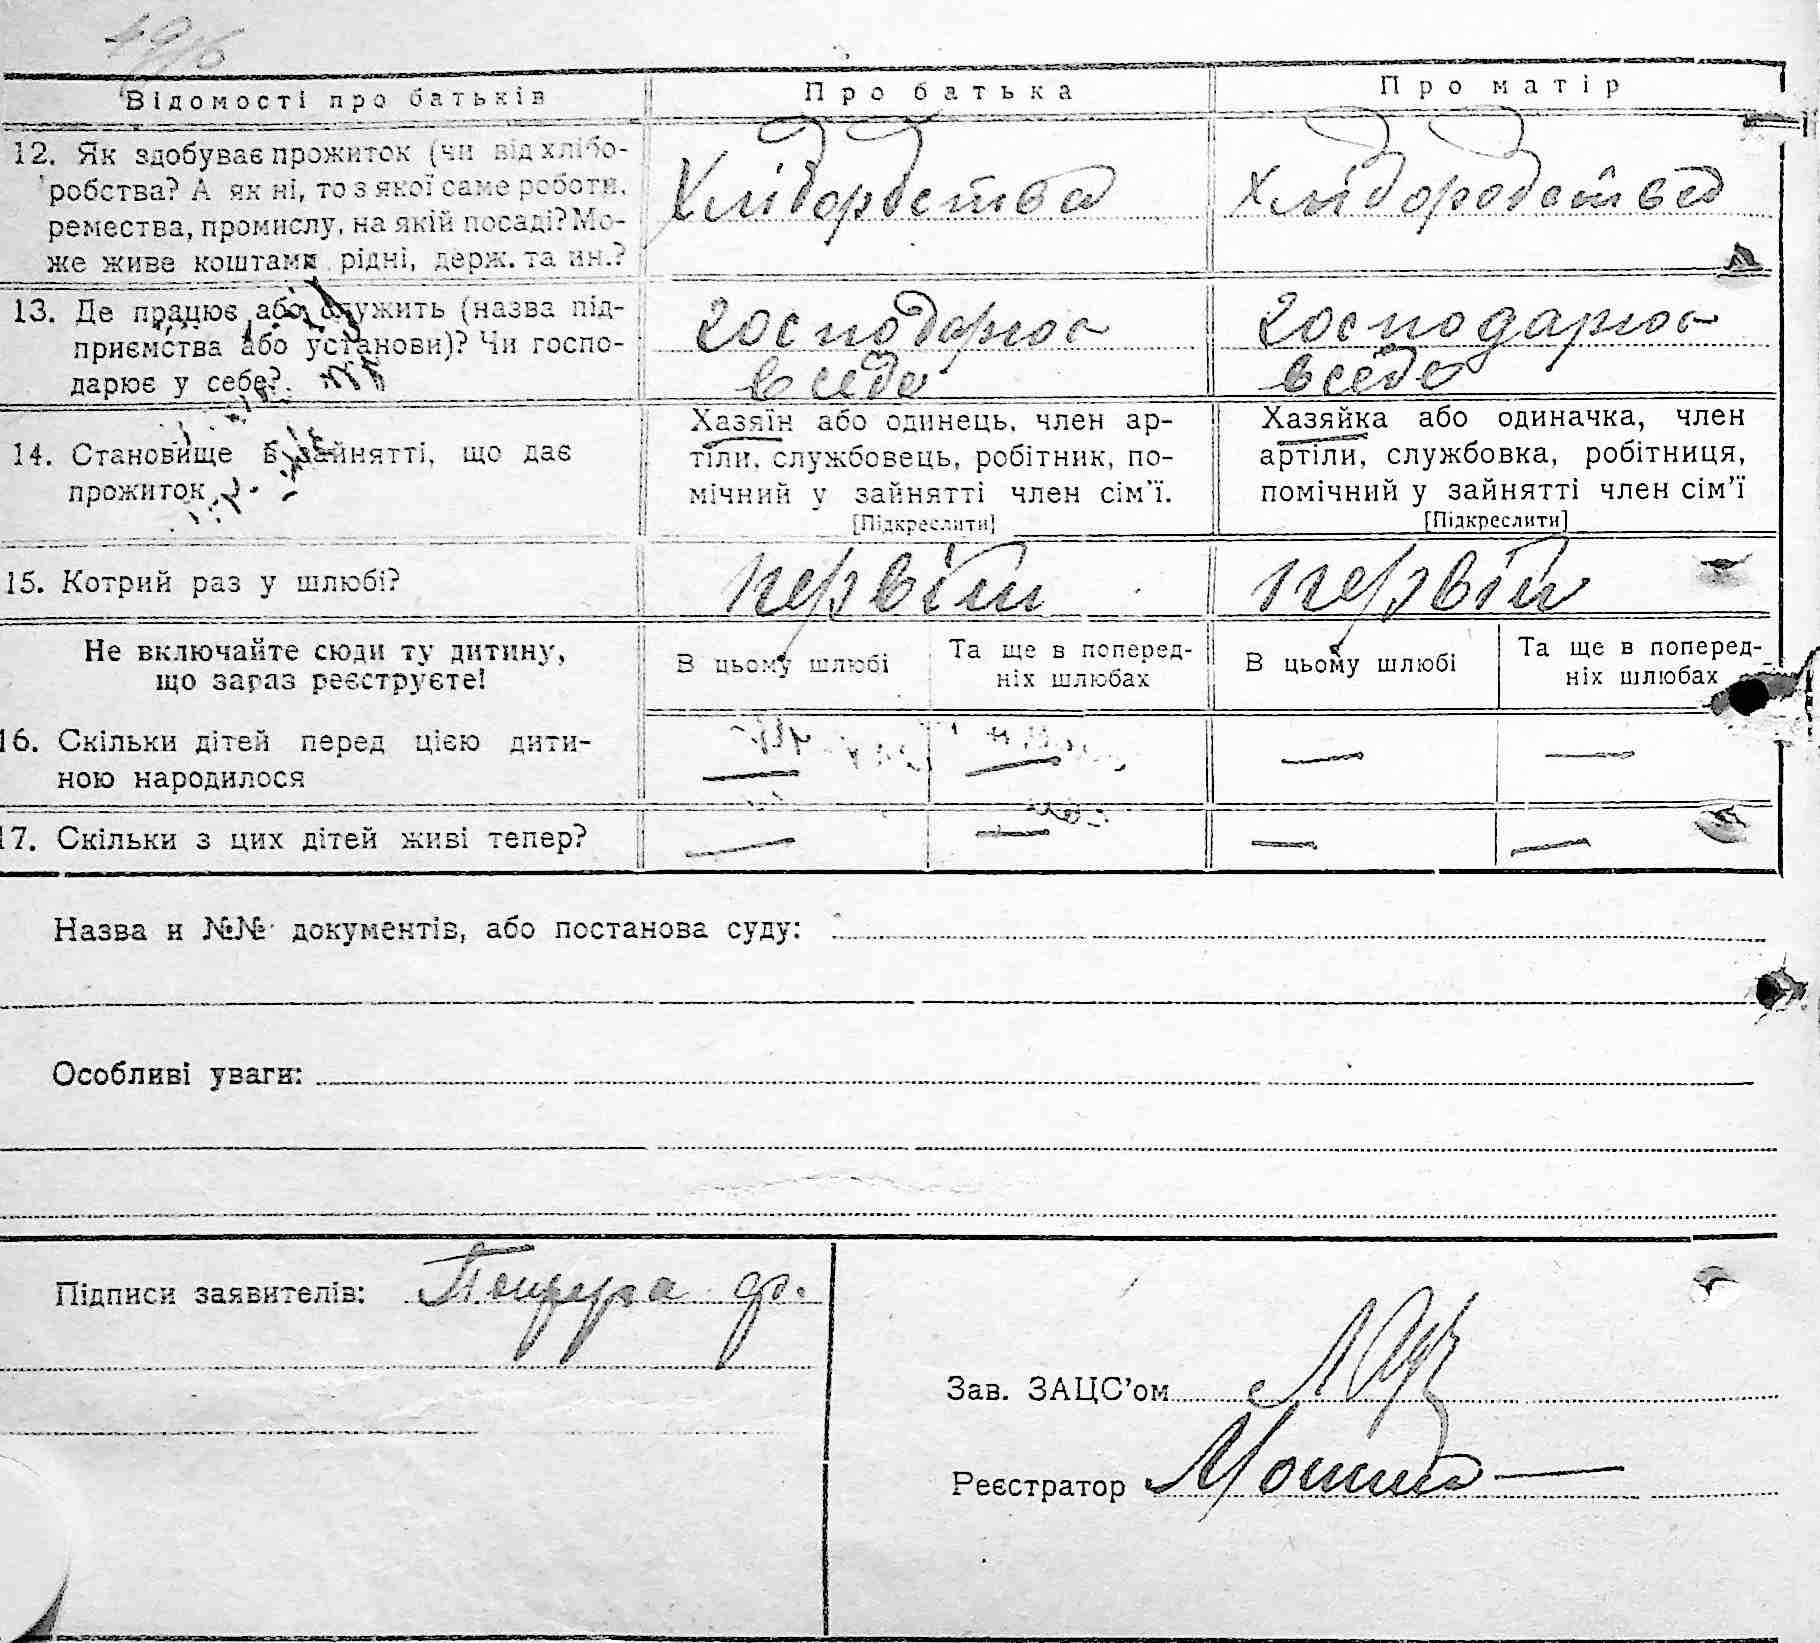 Відомості про батьків
Про батька
Про матір
12. Як здобуває прожиток (чи від хлібо-
робства? А як ні, то з якої саме роботи,
ремества, промислу, на якій посаді? Мо-
же живе коштами рідні, держ. та ин.?
Хліборбства
Хліборобства
13. Де працює або служить (назва під-
приємства або установи)? Чи госпо-
дарює у себе?
господарює
в себе
господарює
в себе
14. Становище в зайнятті, що дає
прожиток
Хазяїн або одинець, член ар-
тіли, службовець, робітник, по-
мічний у зайнятті член сім’ї.
[Підкреслити]
Хазяйка або одиначка, член
артіли, службовка, робітниця,
помічний у зайнятті член сім’ї
[Підкреслити]
15. Котрий раз у шлюбі?
первій
первій
Не включайте сюди ту дитину,
що зараз реєструєте!
В цьому шлюбі
Та ще в поперед-
ніх шлюбах
В цьому шлюбі
Та ще в поперед-
ніх шлюбах
16. Скільки дітей перед цією дити-
ною народилося
— — — —
17. Скільки з цих дітей живі тепер?
— — — —
Назва и №№ документів, або постанова суду:
Особливі уваги:
Підписи заявителів:
Зав. ЗАЦС’ом
Реєстратор